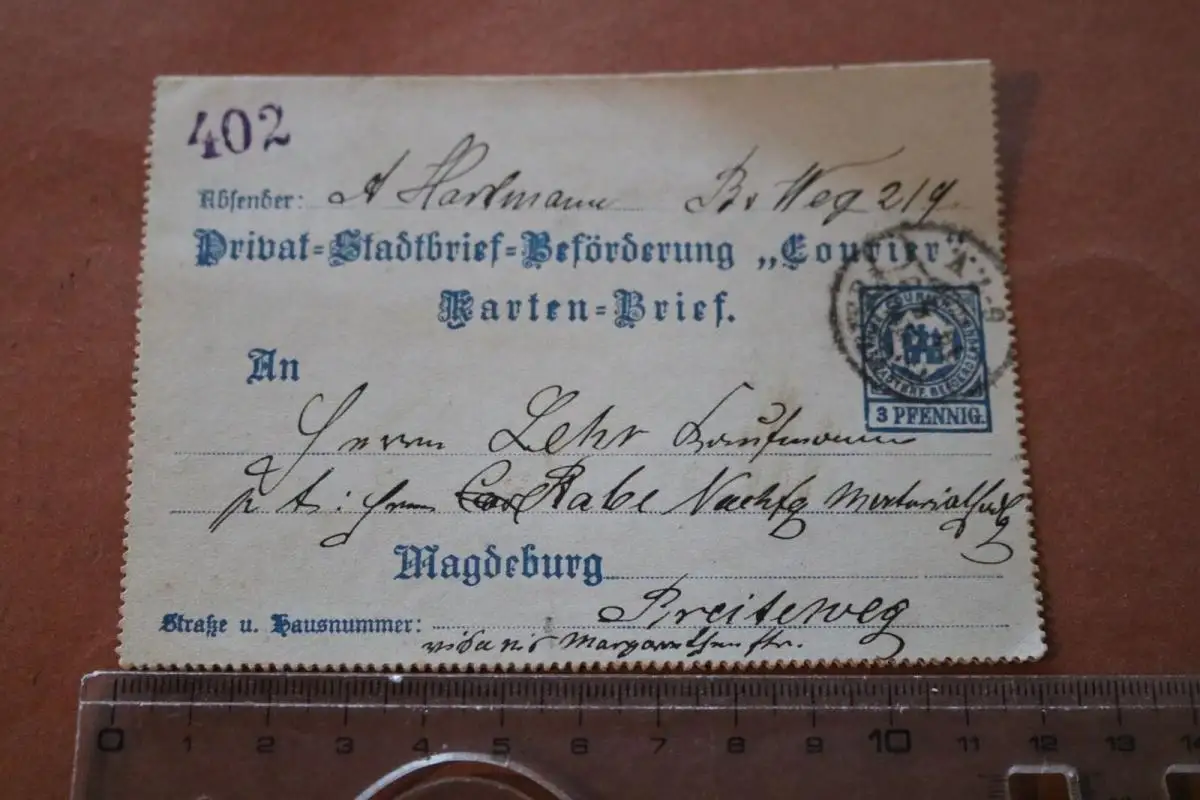 402
Absender: A Hartmann Br. Weg 219.
Privat-Stadtbrief-Beförderung „Courier“
Karten-Brief.
An
3 PFENNIG.
Herrn Lehr Kaufmann
Rabe Nachfg
Magdeburg
Breiteweg
Straße u. Hausnummer:
vis a vis Margarethenstr.
0 1 2 3 4 5 6 7 8 9 10 11 12 13 14